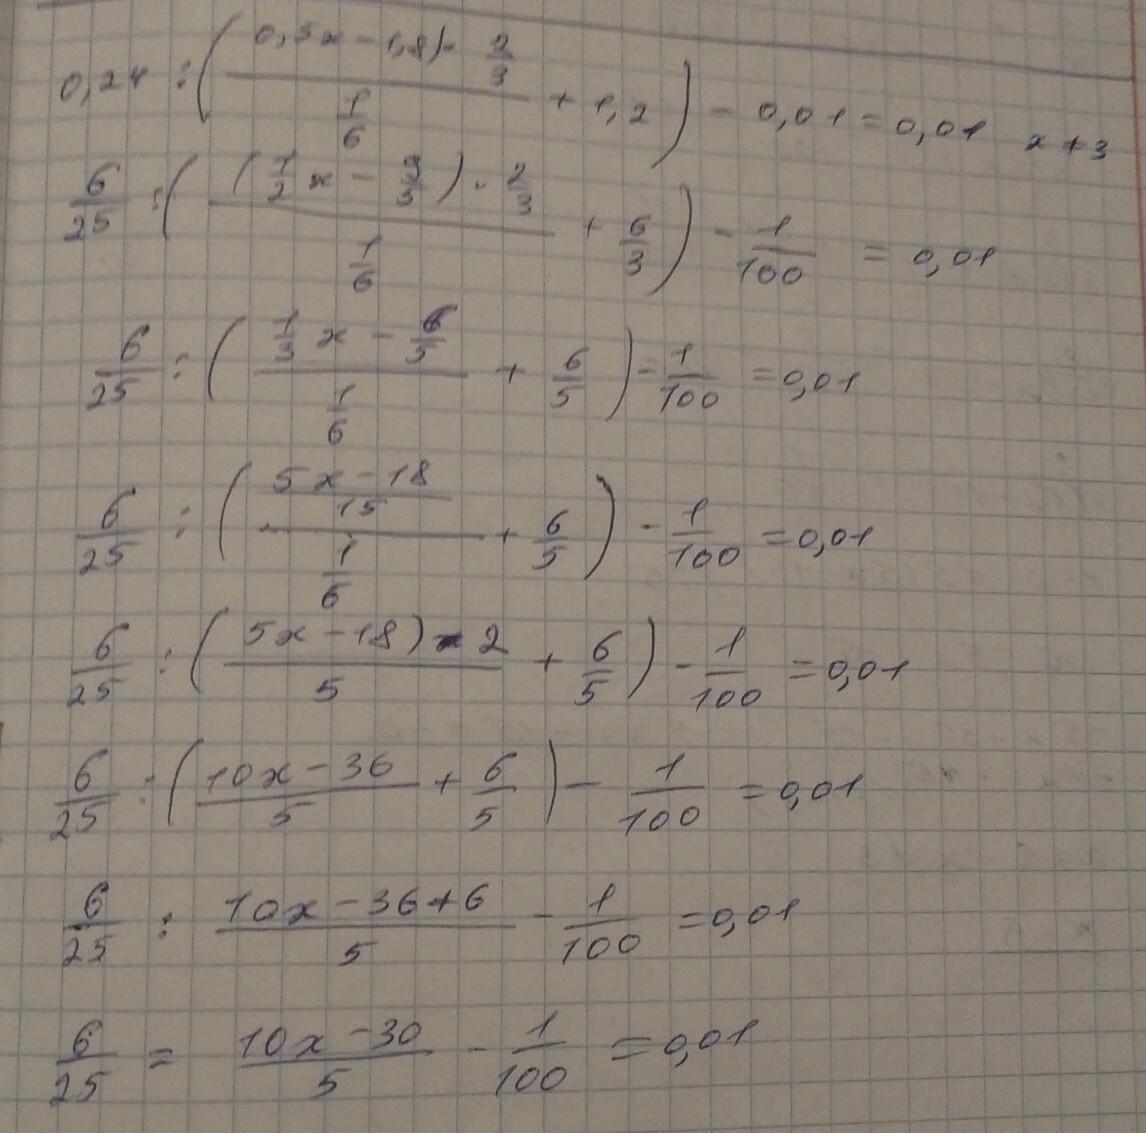 0,24 : ( (0,5x - 1,8) · 2/3 / 1/6 + 1,2 ) - 0,01 = 0,01 x ≠ 3
6/25 : ( (1/2 x - 9/5) · 2/3 / 1/6 + 6/3 ) - 1/100 = 0,01
6/25 : ( 1/3 x - 6/5 / 1/6 + 6/5 ) - 1/100 = 0,01
6/25 : ( 5x - 18 / 15 / 1/6 + 6/5 ) - 1/100 = 0,01
6/25 : ( 5x - 18) · 2 / 5 + 6/5 ) - 1/100 = 0,01
6/25 : ( 10x - 36 / 5 + 6/5 ) - 1/100 = 0,01
6/25 : 10x - 36 + 6 / 5 - 1/100 = 0,01
6/25 = 10x - 30 / 5 - 1/100 = 0,01